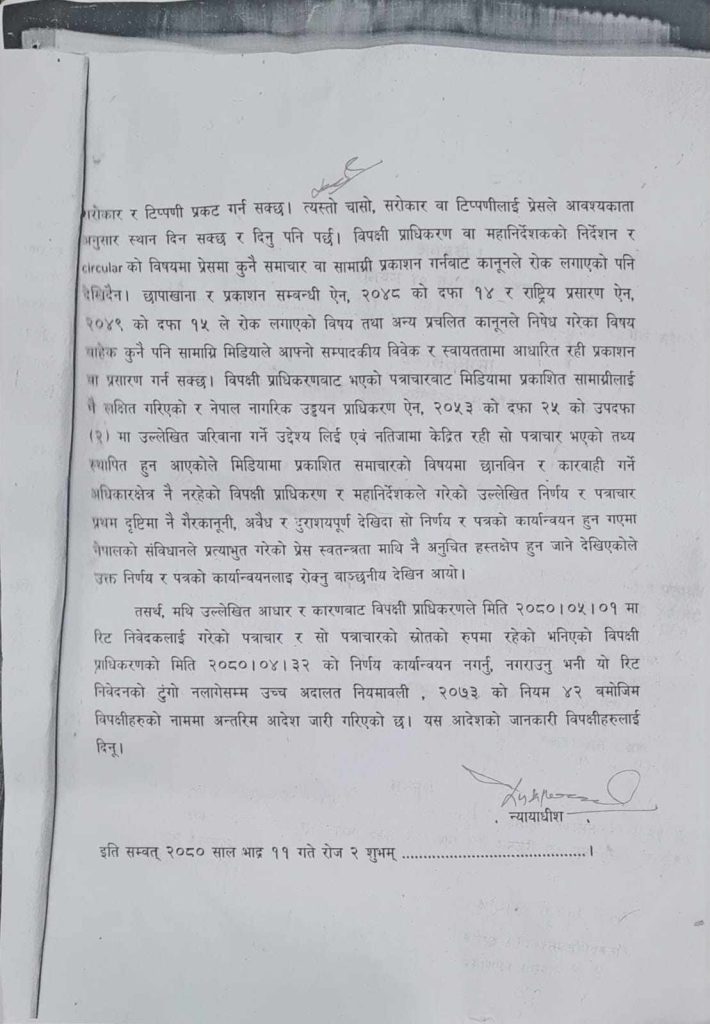 सरोकार र टिप्पणी प्रकट गर्न सक्छ। त्यस्तो चासो, सरोकार वा टिप्पणीलाई प्रेसले आवश्यकाता
अनुसार स्थान दिन सक्छ र दिनु पनि पर्छ। विपक्षी प्राधिकरण वा महानिर्देशकको निर्देशन र
circular को विषयमा प्रेसमा कुनै समाचार वा सामाग्री प्रकाशन गर्नबाट कानूनले रोक लगाएको पनि
देखिदैन। छापाखाना र प्रकाशन सम्बन्धी ऐन, २०४८ को दफा १४ र राष्ट्रिय प्रसारण ऐन,
२०४९ को दफा १५ ले रोक लगाएको विषय तथा अन्य प्रचलित कानूनले निषेध गरेका विषय
बाहेक कुनै पनि सामाग्रि मिडियाले आफ्नो सम्पादकीय विवेक र स्वायततामा आधारित रही प्रकाशन
वा प्रसारण गर्न सक्छ। विपक्षी प्राधिकरणबाट भएको पत्राचारबाट मिडियामा प्रकाशित सामाग्रीलाई
नै लक्षित गरिएको र नेपाल नागरिक उड्डयन प्राधिकरण ऐन, २०५३ को दफा २५ को उपदफा
(२) मा उल्लेखित जरिवाना गर्ने उद्देश्य लिई एवं नतिजामा केद्रित रही सो पत्राचार भएको तथ्य
स्थापित हुन आएकोले मिडियामा प्रकाशित समाचारको विषयमा छानविन र कारवाही गर्ने
अधिकारक्षेत्र नै नरहेको विपक्षी प्राधिकरण र महानिर्देशकले गरेको उल्लेखित निर्णय र पत्राचार
प्रथम दृष्टिमा नै गैरकानूनी, अवैध र दुराशयपूर्ण देखिदा सो निर्णय र पत्रको कार्यान्वयन हुन गएमा
नेपालको संविधानले प्रत्याभुत गरेको प्रेस स्वतन्त्रता माथि नै अनुचित हस्तक्षेप हुन जाने देखिएकोले
उक्त निर्णय र पत्रको कार्यान्वयनलाइ रोक्नु वाञ्छनीय देखिन आयो।
तसर्थ, मथि उल्लेखित आधार र कारणबाट विपक्षी प्राधिकरणले मिति २०८०।०५।०१ मा
रिट निवेदकलाई गरेको पत्राचार र सो पत्राचारको स्रोतको रुपमा रहेको भनिएको विपक्षी
प्राधिकरणको मिति २०८०।०४।३२ को निर्णय कार्यान्वयन नगर्नु, नगराउनु भनी यो रिट
निवेदनको टुंगो नलागेसम्म उच्च अदालत नियमावली , २०७३ को नियम ४२ बमोजिम
विपक्षीहरुको नाममा अन्तरिम आदेश जारी गरिएको छ। यस आदेशको जानकारी विपक्षीहरुलाई
दिनू।
. न्यायाधीश .
इति सम्वत् २०८० साल भाद्र ११ गते रोज २ शुभम् ..........................................।